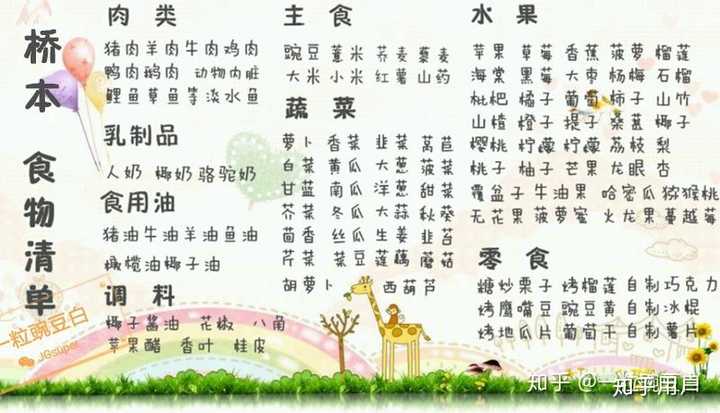 桥本 食物清单
肉 类
猪肉羊肉牛肉鸡肉
鸭肉鹅肉 动物内脏
鲤鱼草鱼等淡水鱼
乳制品
人奶 椰奶骆驼奶
食用油
猪油牛油羊油鱼油
橄榄油椰子油
调 料
椰子酱油 花椒 八角
苹果醋 香叶 桂皮
主 食
豌豆 薏米 荞麦 藜麦
大米 小米 红薯 山药
蔬 菜
萝卜 香菜 韭菜 莴苣
白菜 黄瓜 大葱 菠菜
甘蓝 南瓜 洋葱 甜菜
芥菜 冬瓜 大蒜 秋葵
茴香 丝瓜 生姜 韭苔
芹菜 菜豆 莲藕 蘑菇
胡萝卜 西葫芦
水 果
苹果 草莓 香蕉 菠萝 榴莲
海棠 黑莓 大枣 杨梅 石榴
枇杷 橘子 葡萄 柿子 山竹
山楂 橙子 提子 桑葚 椰子
樱桃 柠檬 柠檬 荔枝 梨
桃子 柚子 芒果 龙眼 杏
覆盆子 牛油果 哈密瓜 猕猴桃
无花果 菠萝蜜 火龙果 蔓越莓
零 食
糖炒栗子 烤榴莲 自制巧克力
烤鹰嘴豆 豌豆黄 自制冰棍
烤地瓜片 葡萄干 自制薯片
一粒豌豆白
JGsuper
知乎 @一粒豌豆白
知乎用户